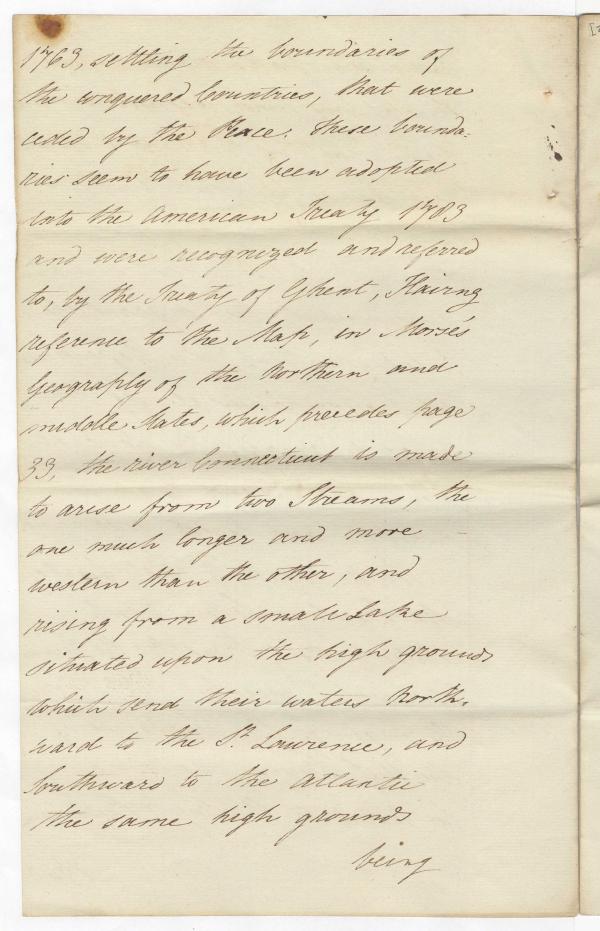 1763, settling the boundaries of
the conquered Countries, that were
ceded by the Peace: these bounda-
ries seem to have been adopted
into the American Treaty 1783
and were recognized and referred
to, by the Treaty of Ghent, Having
reference to the Map, in Morse's
Geography of the Northern and
middle States, which precedes page
33, the river Connecticut is made
to arise from two Streams, the
one much longer and more
western than the other, and
rising from a small Lake
situated upon the high grounds
which send their waters North-
ward to the St. Lawrence, and
Southward to the Atlantic
the same high grounds
being